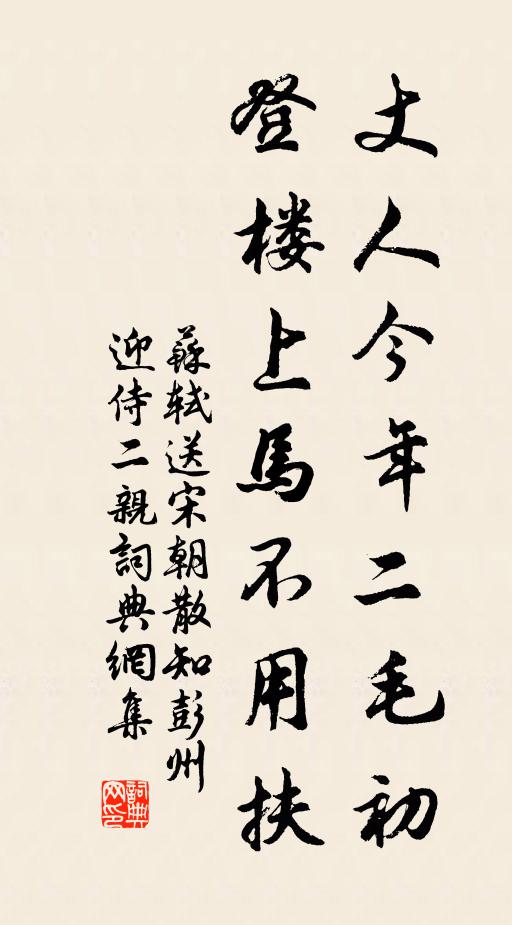 丈人今年二毛初
登楼上馬不用扶
蘇軾送宋朝散知彭州
迎侍二親詞典網集
詞典
网印